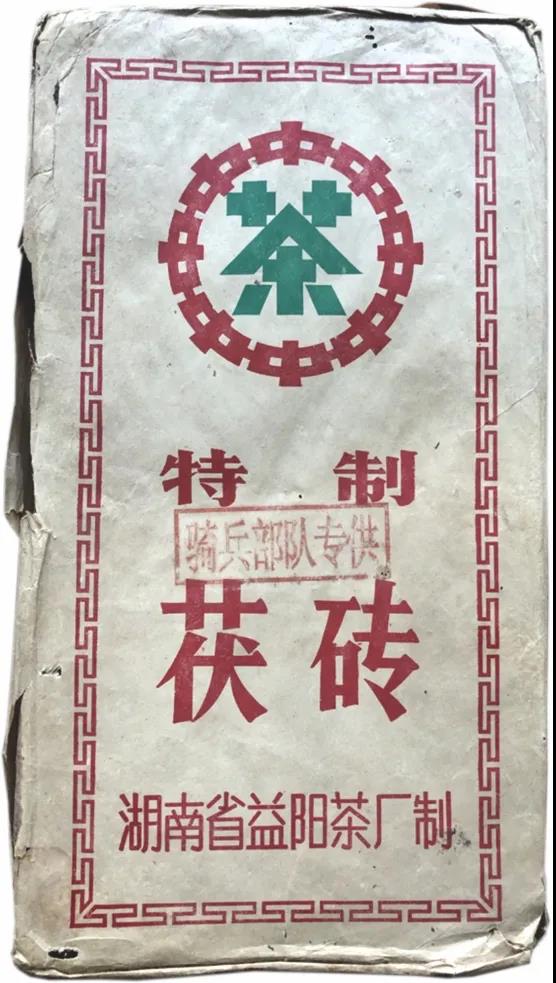 茶
特制
骑兵部队专供
茯砖
湖南省益阳茶厂制